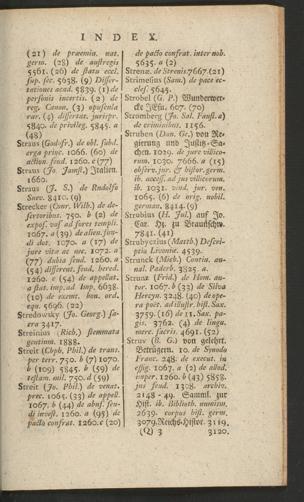 INDEX.
(21) de praemin. nat.
germ. (28) de austregis
5561. (26) de statu eccl.
sup. sec. 5638. (9) Disser-
tationes acad. 5839. (1) de
personis incertis. (2) de
reg. Canon. (3) opuscula
rar. (4) dissertat. jurispr.
5840. de privileg. 5845. a
(48)
Straus (Godofr.) de obl. subd.
erga princ. 1066. (60) de
action. fund. 1260. c (77)
Straus (Jo. Jamst.) Italien.
1660.
Straus (J. S.) de Rudolfo
Suev. 8410. (9)
Strecker (Conr. Wilh.) de de-
sertoribus. 750. b (2) de
expos. vas. ad fores templi.
1067. a (39) de alien. fun-
di dot. 1070. a (17) de
jure vitæ ac nec. 1072. a
(77) dubia feud. 1260. a
(54) different. feud. hered.
1260. c (54) de appellat.
a stat. imp. ad Imp. 6638.
(10) de exemt. bon. ord.
equ. 5696. (22)
Stredowsky (Jo. Georg.) sa-
cra 3417.
Streinius (Rich.) stemmata
gentium. 1888.
Streit (Chph. Phil.) de trans.
per terr. 750. b (7) 1070.
b (109) 5845. b (59) de
testam. mil. 750. d (59)
Streit (Jo. Phil.) de venat.
prec. 1065. (33) de appell.
1067. b (44) de abus. feu-
di invest. 1260. a (95) de
pacto confrat. 1260. c (20)
de pacto confrat. inter nob.
5635. a (2)
Strenæ. de Strenis 7667. (21)
Strimesius (Sam.) de pace ec-
cles. 5645.
Strobel (G. P.) Wunderwer-
cke JEsu. 607. (70)
Stromberg (Jo. Sal. Faust. a)
de criminibus. 1156.
Struben (Dav. Ge.) von Re-
gierung und Justitz-Sa-
chen. 1019. de jure villico-
rum. 1030. 7666. a (15)
observ. jur. & histor. germ.
ib. access. ad jus villicorum.
ib. 1031. vind. jur. ven.
1065. (6) de orig. nobil.
german. 8414. (9)
Strubius (H. Jul.) auf Jo.
Car. Hz. zu Braunschw.
7841. (41)
Strubyczius (Matth.) Descri-
ptio Livoniæ. 4539.
Strunck (Mich.) Contin. an-
nal. Paderb. 3825. a.
Strunz (Frid.) de Hom. au-
tor. 1067. b (33) de Silva
Hercyn. 3248. (40) de ope-
ra poët. ad illustr. hist. Sax.
3759. (16) de 11. Sax. pa-
gis. 3762. (4) de lingu.
mere. sacris. 4691. (52)
Struv (B. G.) von gelehrt.
Betrügern. 10. de Synodo
Franc. 248. de execut. in
effig. 1067. a (2) de allod.
imper. 1260. b (43) 5858.
jus feud. 1308. archiv.
2148-49. Samml. zur
Hist. ib. Biblioth. numism.
2639. corpus hist. germ.
3079. Reichs-Histor. 3119.
(Q) 3
3120.